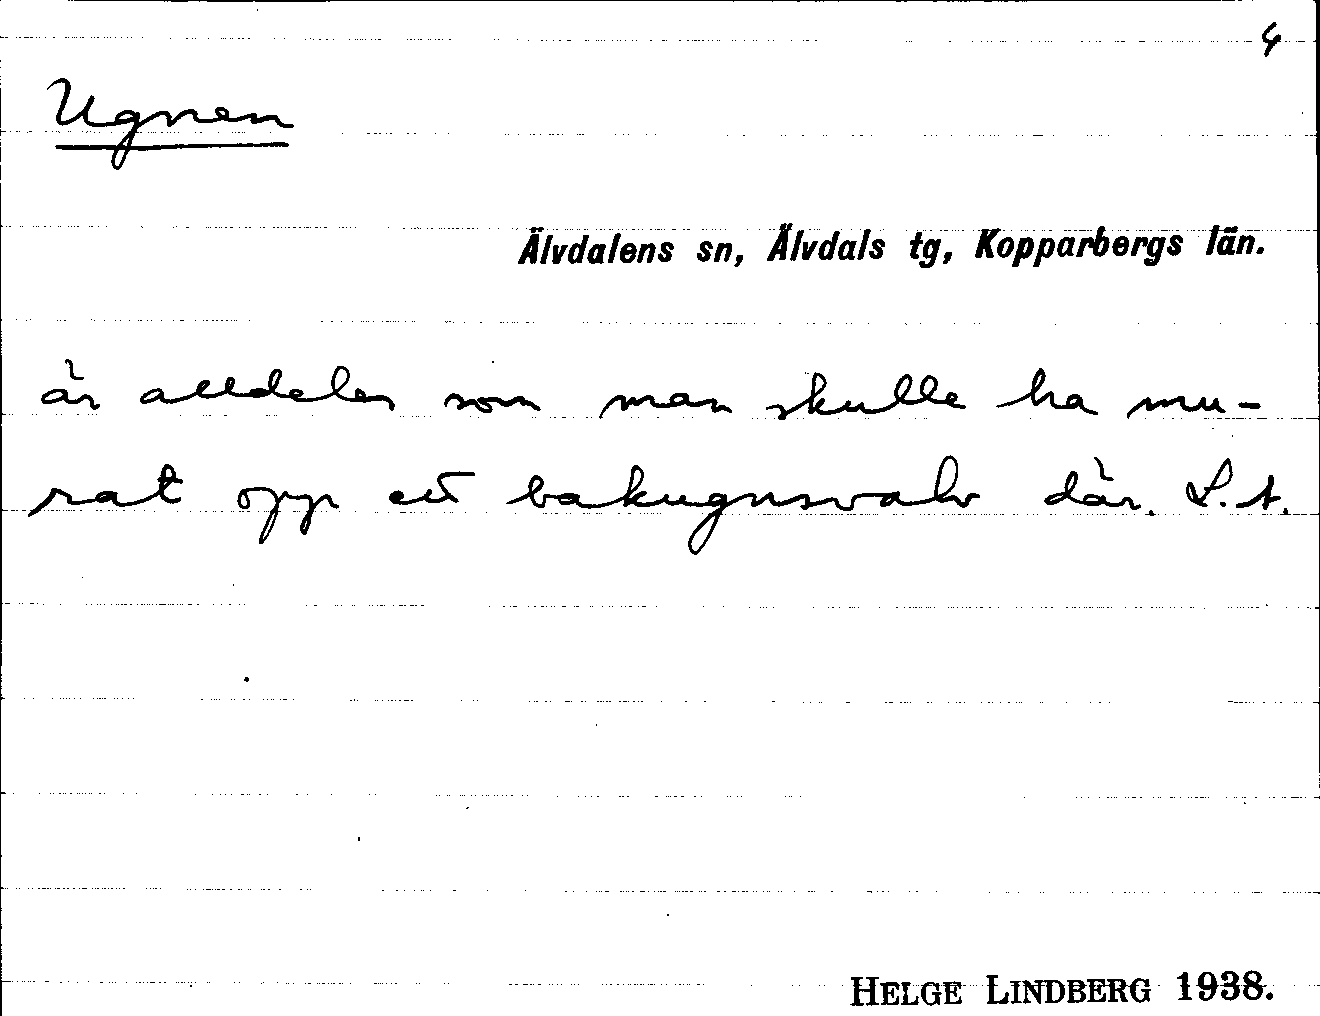 4
Ugnen
Älvdalens sn, Älvdals tg, Kopparbergs län.
är alldeles som man skulle ha mu-
rat opp ett bakugnsvalv där. L.A.
HELGE LINDBERG 1938.